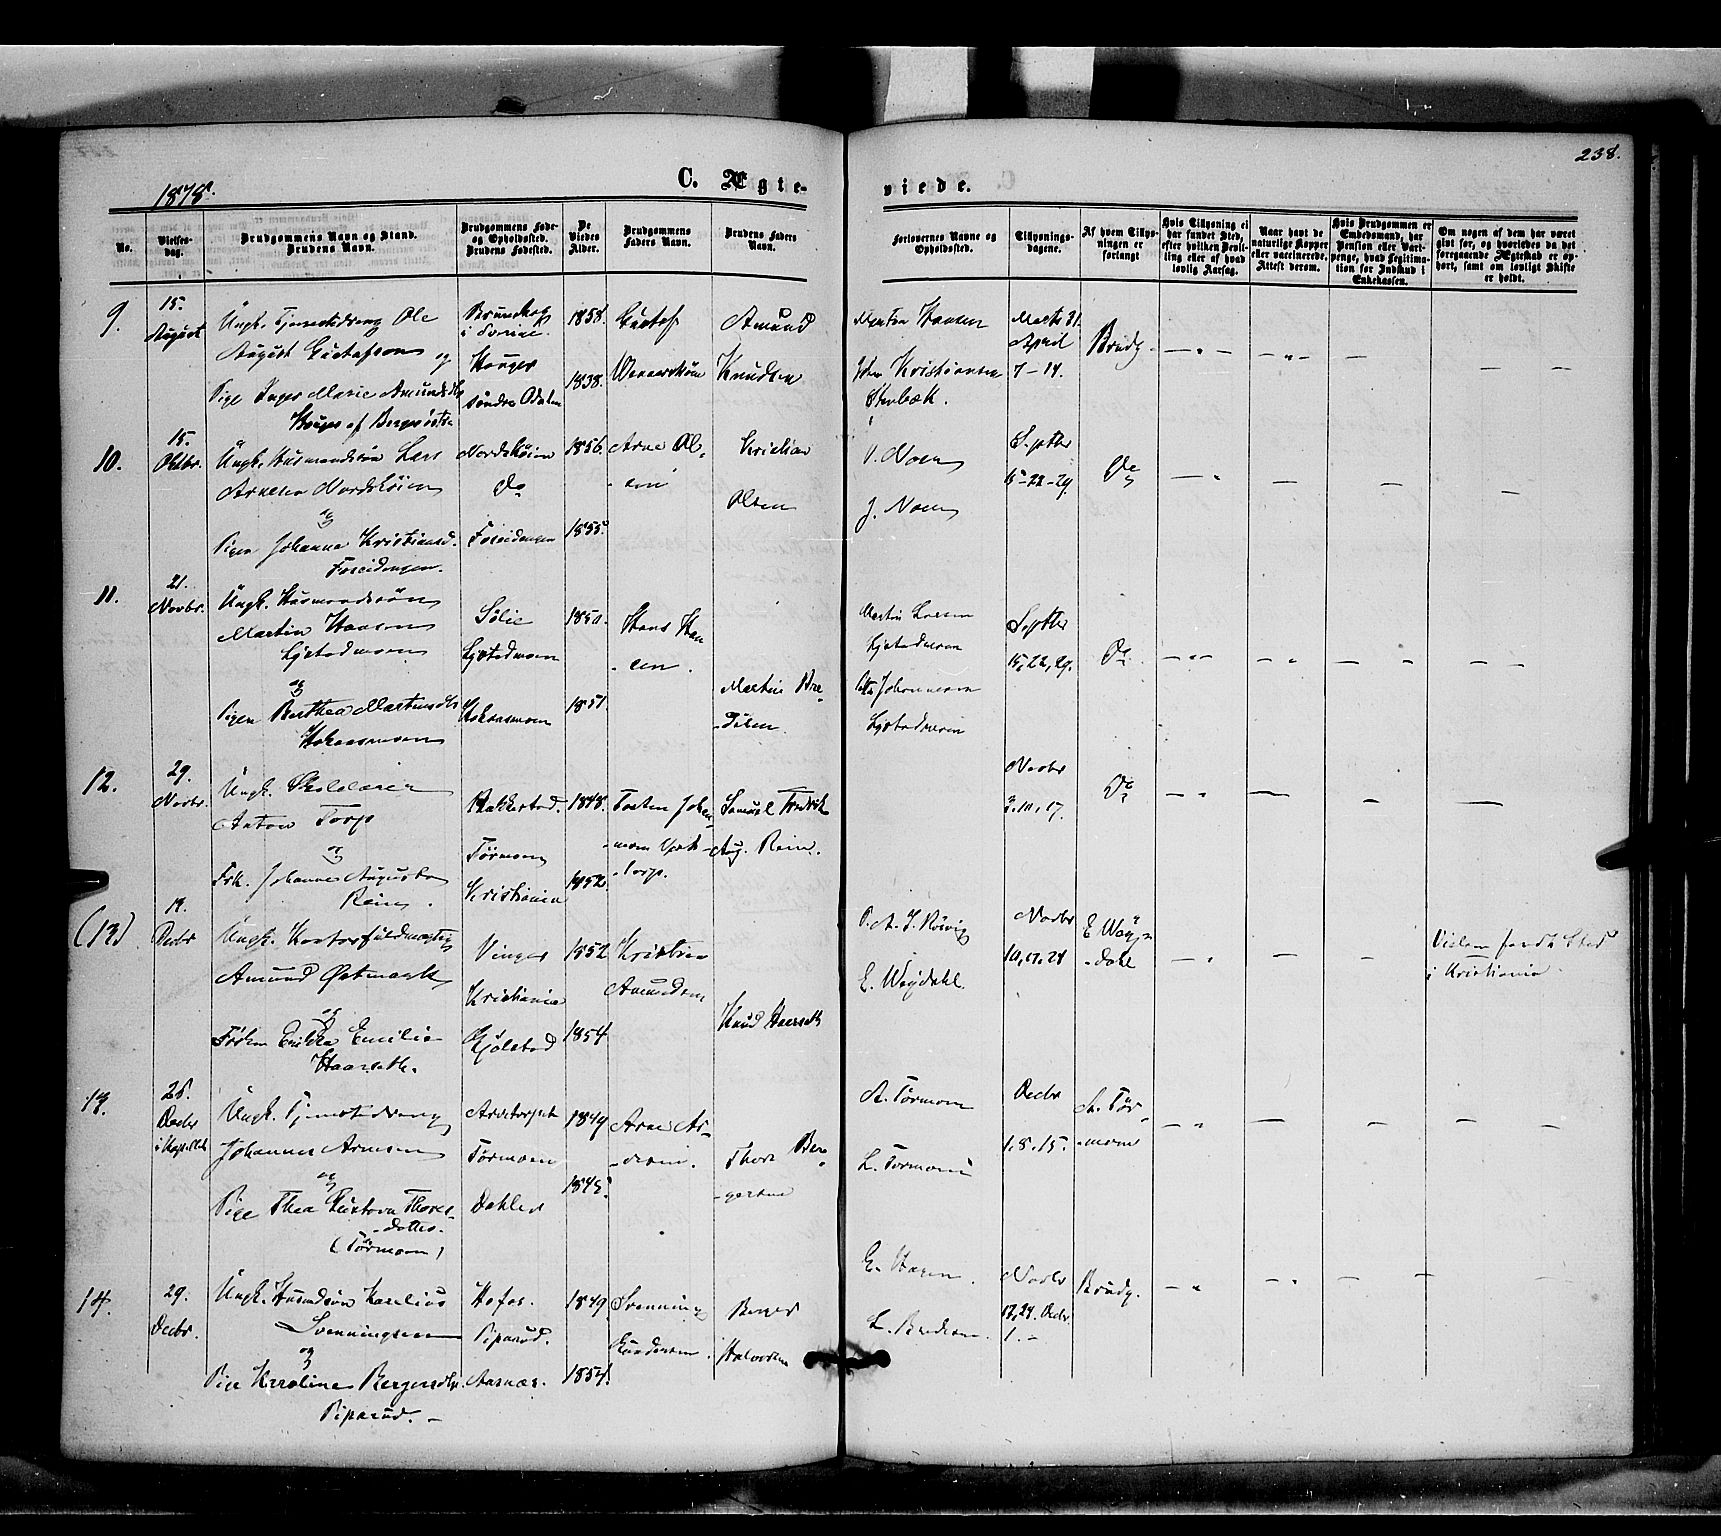 238.
1878.
C. Ægte-
viede.
No.
Vielses-
dag.
Brudgommens Navn og Stand.
Brudens Navn.
Brudgommens Føde-
og Opholdssted.
Brudens Fødested.
De
Viedes
Alder.
Brudgommens
Faders Navn.
Brudens Faders
Navn.
Forlovernes Navne og
Opholdssted.
Tillysnings-
dagene.
Af hvem Tillys-
ningen er
forlangt
Hvis Tillysning ei
har fundet Sted,
efter hvilken Bevil-
ling eller af hvad
lovlig Aarsag.
Naar havt de
naturlige Kopper
eller vaccinerede.
Attest derom.
Hvis Brudgommen er
Embedsmand, har
Pension eller Vart-
penge, hvad Legitima-
tion for Indskud i
Enkekassen.
Om nogen af dem har været
givt før, og hvorledes da det
foregaaende Ægteskab er op-
hørt, samt om lovligt Skifte
er holdt.
9.
15.
August
Ungk. Tjenestedreng Ole
August Gustafson og
Pige Inger Marie Amundsdtr
Houger af
i Sverige.
Houger
søndre Odalen
1858.
1838.
Gustaf
Amund
Knudsen
Morten Hansen
Kristiansen
Marts 31.
April
7-14.
Brudg.
10.
15.
Oktbr.
Ungk. Husmandssøn Lars
Arnesen Nordskoien
og
Pigen Johanne Kristiansd.
Fossidengen.
Nordskoien
Do
Fossidengen
1856.
1855.
Arne Ol-
-sen
Kristian
Olsen
J. Noer
Septbr
15-22-29.
Do
11.
21.
Novbr.
Ungk. Husmandssøn
Martin Hansen
Ljøstadmoen
og
Pigen Berthea Martinsdtr
Hokaasmoen
Sølie
Ljøstadmoen
Hokaasmoen
1850.
1851.
Hans Han-
-sen.
Martin Bre-
-desen.
Martin Larsen
Ljøstadmoen
Johannesen
Ljøstadmoen
Septbr
15, 22, 29.
Do
12.
29.
Novbr.
Ungk. Skolelærer
Anton Torp
og
Frk. Johanne Augusta
Rein.
Blakkestad.
Tørmoen
Kristiania
1848.
1852.
Torsten Johan-
-torp.
Samuel Fredrik
Aug. Rein.
Novbr
3, 10, 17.
Do
(13)
19.
Decbr
Ungk. Kontorfuldmægtig
Amund Østmoe
og
Frøken Emilie
Haarseth.
Vinger
Kristiania
Kjølstad
1852
1854
Kristian
Amundsen
Knud Haarseth
E. Wøydahl.
Novbr
10, 17, 24
E. Wøy-
-dahl
Vielsen fandt Sted
i Kristiania.
13.
26.
Decbr
Ungk. Tjenestedreng
Johannes Arnesen
og
Pige Thea Gustava Thores-
-datter.
(Tørmoen)
Arnetorpet
Tørmoen
Dahlen
1849
1845.
Arne
Thore Ber-
A. Tørmoen
L. Tormoen
Decbr
1, 8, 15.
A. Tør-
-moen
14.
29.
Decbr.
Ungk. Husmdsøn Karelius
Svenningsen
og
Pige Karoline Bergersdtr.
Piparud.
Hofos.
Piparud.
Aasnæs.
1849.
1854.
Svenning
Gundersen.
Berger
Halvorsen
E. Hagen.
L. Bredesen.
Novbr
17, 24. Decbr.
1.
Brudg.